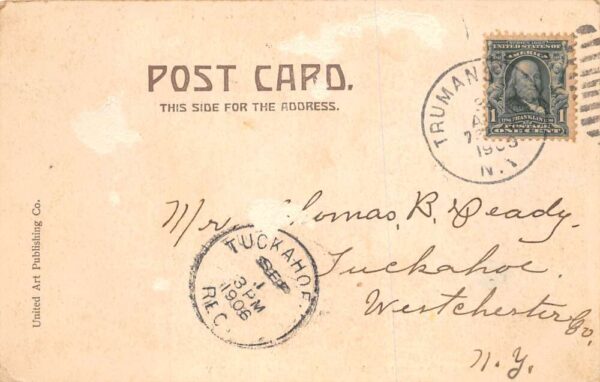 POST CARD.
THIS SIDE FOR THE ADDRESS.
SERIES 1902
UNITED STATES OF
AMERICA
1 FRANKLIN 1
POSTAGE
ONE CENT
TRUMAN
1906
N.Y.
Mr. Thomas, B. Deady.
Tuckahoe.
Westchester Co,
N.Y.
TUCKAHOE
SEP
1
3 PM
1906
REC.
United Art Publishing Co.